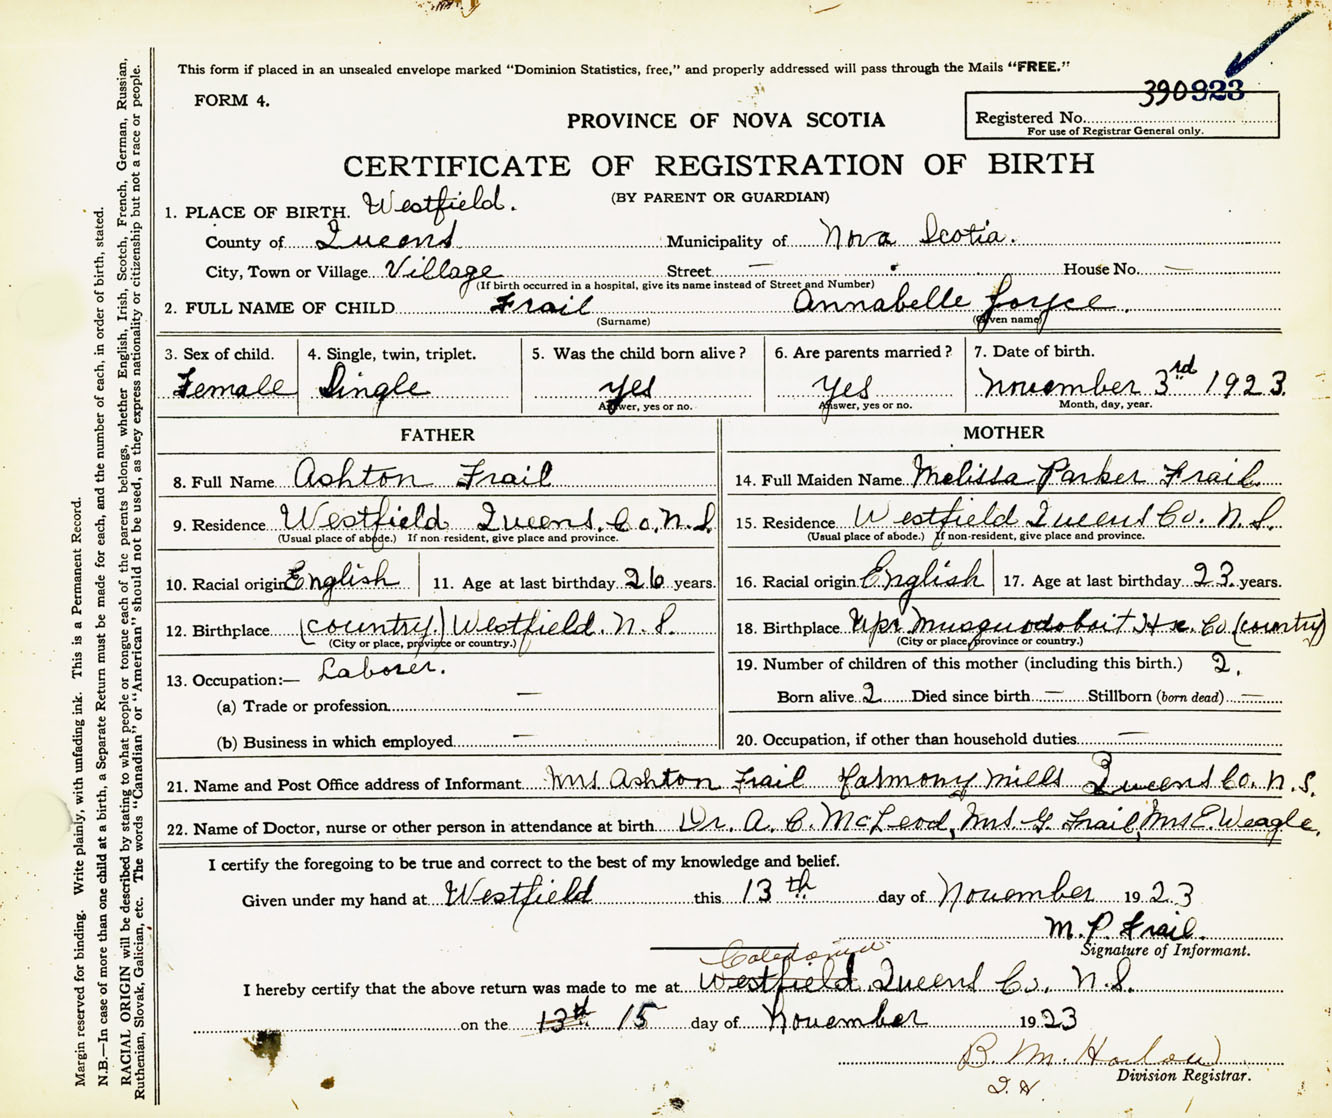 This form if placed in an unsealed envelope marked "Dominion Statistics, free," and properly addressed will pass through the Mails "FREE."
FORM 4.
390923
PROVINCE OF NOVA SCOTIA
Registered No.
For use of Registrar General only.
CERTIFICATE OF REGISTRATION OF BIRTH
(BY PARENT OR GUARDIAN)
1. PLACE OF BIRTH. Westfield.
County of Queens Municipality of Nova Scotia.
City, Town or Village Village Street — House No. —
(If birth occurred in a hospital, give its name instead of Street and Number)
2. FULL NAME OF CHILD Frail Annabelle Joyce.
(Surname) (Given name)
3. Sex of child. 4. Single, twin, triplet. 5. Was the child born alive? 6. Are parents married? 7. Date of birth.
Female Single Yes Yes November 3rd 1923.
Answer, yes or no. Answer, yes or no. Month, day, year.
FATHER MOTHER
8. Full Name Ashton Frail 14. Full Maiden Name Melissa Parker Frail
9. Residence Westfield Queens. Co, N.S. 15. Residence Westfield Queens Co. N.S.
(Usual place of abode.) If non-resident, give place and province. (Usual place of abode.) If non-resident, give place and province.
10. Racial origin English 11. Age at last birthday 26 years. 16. Racial origin English 17. Age at last birthday 23 years.
12. Birthplace (country) Westfield. N.S. 18. Birthplace Upr Musquodoboit Hx. Co (country)
(City or place, province or country.) (City or place, province or country.)
13. Occupation:— Laborer. 19. Number of children of this mother (including this birth.) 2.
(a) Trade or profession — Born alive 2 Died since birth — Stillborn (born dead) —
(b) Business in which employed — 20. Occupation, if other than household duties —
21. Name and Post Office address of Informant Mrs Ashton Frail Harmony Mills Queens Co. N.S.
22. Name of Doctor, nurse or other person in attendance at birth Dr. A. C. McLeod, Mrs. G. Frail, Mrs E. Weagle.
I certify the foregoing to be true and correct to the best of my knowledge and belief.
Given under my hand at Westfield this 13th day of November 1923
M. P. Frail.
Signature of Informant.
Caledonia
I hereby certify that the above return was made to me at Westfield, Queens Co, N.S.
on the 13th 15 day of November 1923
B. M. Harlow
Division Registrar.
Margin reserved for binding. Write plainly, with unfading ink. This is a Permanent Record.
N.B.—In case of more than one child at a birth, a Separate Return must be made for each, and the number of each, in order of birth, stated.
RACIAL ORIGIN will be described by stating to what people or tongue each of the parents belongs, whether English, Irish, Scotch, French, German, Russian,
Ruthenian, Slovak, Galician, etc. The words "Canadian" or "American" should not be used, as they express nationality or citizenship but not a race or people.